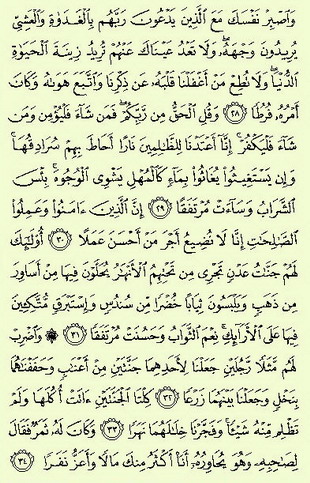 وَٱصْبِرْ نَفْسَكَ مَعَ ٱلَّذِينَ يَدْعُونَ رَبَّهُم بِٱلْغَدَوٰةِ وَٱلْعَشِىِّ
يُرِيدُونَ وَجْهَهُۥ ۖ وَلَا تَعْدُ عَيْنَاكَ عَنْهُمْ تُرِيدُ زِينَةَ ٱلْحَيَوٰةِ
ٱلدُّنْيَا ۖ وَلَا تُطِعْ مَنْ أَغْفَلْنَا قَلْبَهُۥ عَن ذِكْرِنَا وَٱتَّبَعَ هَوَىٰهُ وَكَانَ
أَمْرُهُۥ فُرُطًا ﴿٢٨﴾ وَقُلِ ٱلْحَقُّ مِن رَّبِّكُمْ ۖ فَمَن شَآءَ فَلْيُؤْمِن وَمَن
شَآءَ فَلْيَكْفُرْ ۚ إِنَّآ أَعْتَدْنَا لِلظَّـٰلِمِينَ نَارًا أَحَاطَ بِهِمْ سُرَادِقُهَا ۚ
وَإِن يَسْتَغِيثُوا۟ يُغَاثُوا۟ بِمَآءٍ كَٱلْمُهْلِ يَشْوِى ٱلْوُجُوهَ ۚ بِئْسَ
ٱلشَّرَابُ وَسَآءَتْ مُرْتَفَقًا ﴿٢٩﴾ إِنَّ ٱلَّذِينَ ءَامَنُوا۟ وَعَمِلُوا۟
ٱلصَّـٰلِحَـٰتِ إِنَّا لَا نُضِيعُ أَجْرَ مَنْ أَحْسَنَ عَمَلًا ﴿٣٠﴾ أُو۟لَـٰٓئِكَ
لَهُمْ جَنَّـٰتُ عَدْنٍ تَجْرِى مِن تَحْتِهِمُ ٱلْأَنْهَـٰرُ يُحَلَّوْنَ فِيهَا مِنْ أَسَاوِرَ
مِن ذَهَبٍ وَيَلْبَسُونَ ثِيَابًا خُضْرًا مِّن سُندُسٍ وَإِسْتَبْرَقٍ مُّتَّكِـِٔينَ
فِيهَا عَلَى ٱلْأَرَآئِكِ ۚ نِعْمَ ٱلثَّوَابُ وَحَسُنَتْ مُرْتَفَقًا ﴿٣١﴾ ۞ وَٱضْرِبْ
لَهُم مَّثَلًا رَّجُلَيْنِ جَعَلْنَا لِأَحَدِهِمَا جَنَّتَيْنِ مِنْ أَعْنَـٰبٍ وَحَفَفْنَـٰهُمَا
بِنَخْلٍ وَجَعَلْنَا بَيْنَهُمَا زَرْعًا ﴿٣٢﴾ كِلْتَا ٱلْجَنَّتَيْنِ ءَاتَتْ أُكُلَهَا وَلَمْ
تَظْلِم مِّنْهُ شَيْـًٔا ۚ وَفَجَّرْنَا خِلَـٰلَهُمَا نَهَرًا ﴿٣٣﴾ وَكَانَ لَهُۥ ثَمَرٌ فَقَالَ
لِصَـٰحِبِهِۦ وَهُوَ يُحَاوِرُهُۥٓ أَنَا۠ أَكْثَرُ مِنكَ مَالًا وَأَعَزُّ نَفَرًا ﴿٣٤﴾